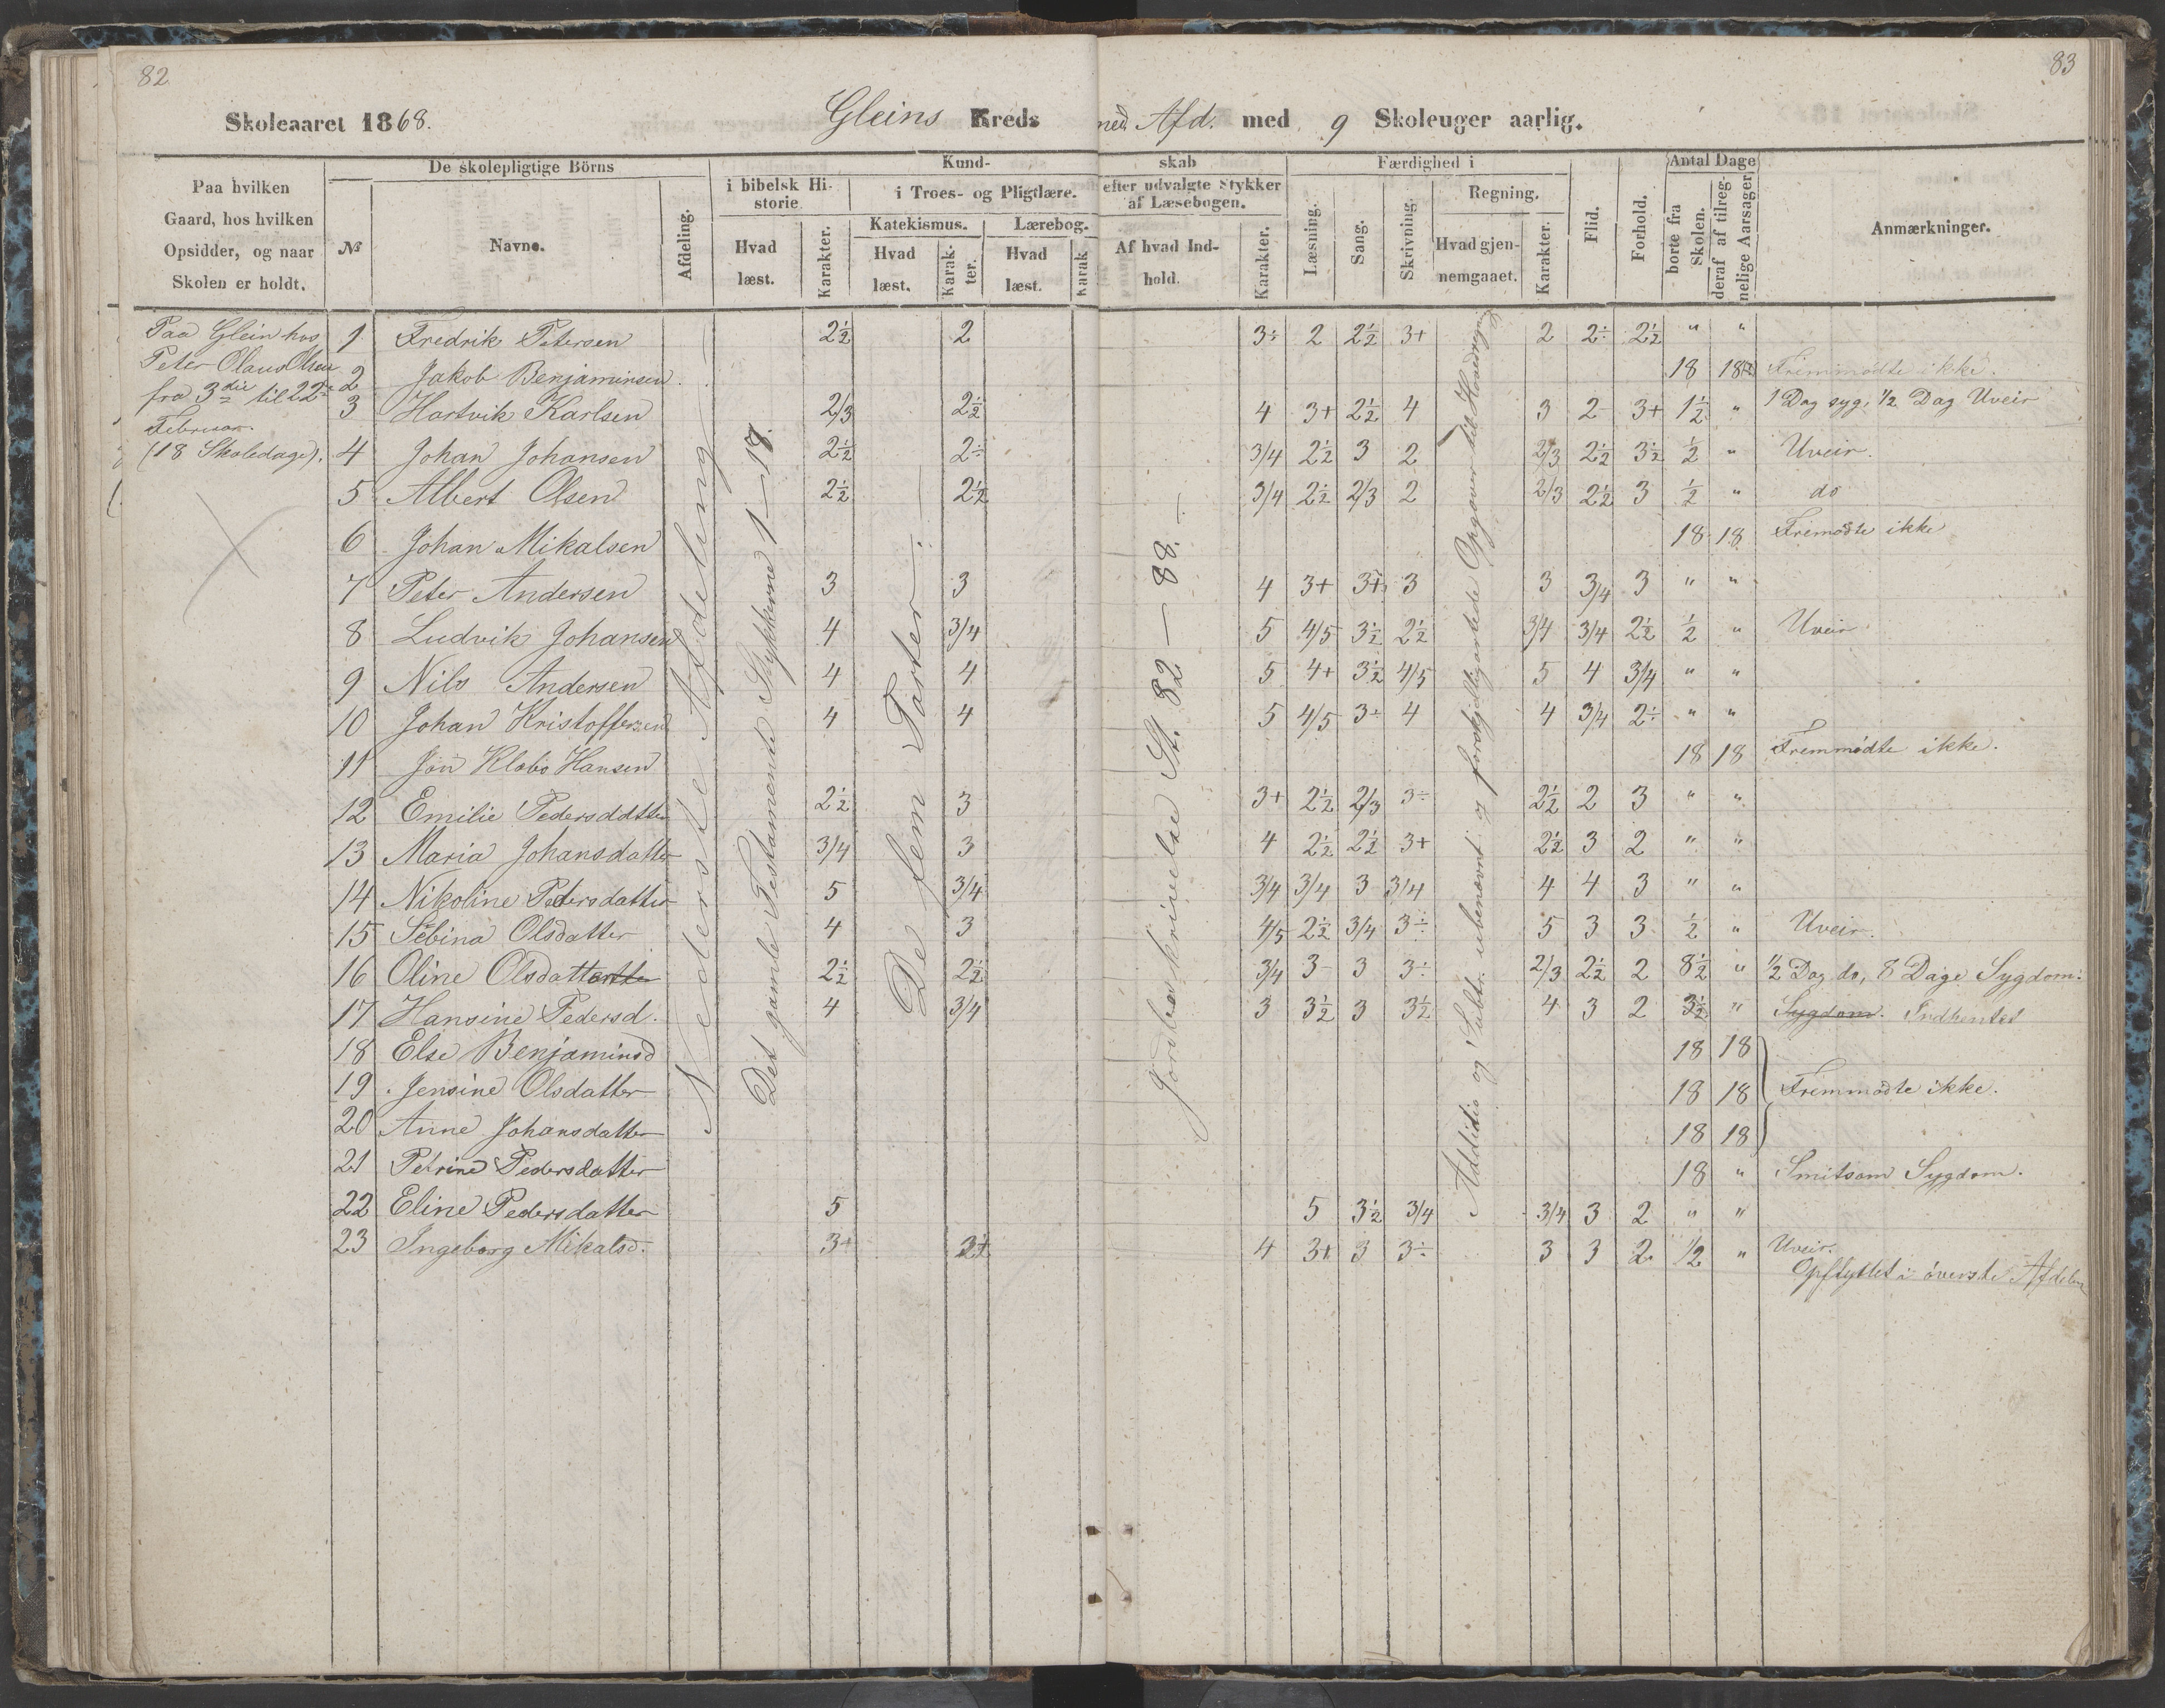 82
83
Skoleaaret 1868. Gleins Kreds ned. Afd. med 9 Skoleuger aarlig.
Paa hvilken Gaard, hos hvilken Opsidder, og naar Skolen er holdt.
De skolepligtige Börns
№
Navne.
Afdeling.
Kundskab
i bibelsk Historie
Hvad læst.
Karakter.
i Troes- og Pligtlære.
Katekismus.
Hvad læst.
Karakter.
Lærebog.
Hvad læst.
Karak
efter udvalgte Stykker af Læsebogen.
Af hvad Indhold.
Karakter.
Færdighed i
Læsning.
Sang.
Skrivning.
Regning.
Hvad gjennemgaaet.
Karakter.
Flid.
Forhold.
Antal Dage
borte fra Skolen.
deraf af tilregnelige Aarsager
Anmærkninger.
Paa Glein hos
Peter Olaus Olsen
fra 3die til 22de
Februar.
(18 Skoledage).
Nederste Afdeling
Det gamle Testamente Stykkerne 1–18.
De fem Parter
Jordbeskrivelse St. 82–88.
Additio og Subtr. ubenævnt og forskjelligartede Opgaver til Hovedregning
1 Fredrik Petersen 2½ 2 3÷ 2 2½ 3+ 2 2÷ 2½ " "
2 Jakob Benjaminsen. 18 18 Fremmødte ikke.
3 Hartvik Karlsen 2/3 2½ 4 3+ 2½ 4 3 2- 3+ 1½ " 1 Dag syg, ½ Dag Uveir
4 Johan Johansen 2½ 2÷ 3/4 2½ 3 2 2/3 2½ 3½ ½ " Uveir.
5 Albert Olsen 2½ 2½ 3/4 2½ 2/3 2 2/3 2½ 3 ½ " do
6 Johan Mikalsen 18 18 Fremødte ikke
7 Peter Andersen 3 3 4 3+ 3+ 3 3 3/4 3 " "
8 Ludvik Johansen 4 3/4 5 4/5 3½ 2½ 3/4 3/4 2½ ½ " Uveir
9 Nils Andersen 4 4 5 4+ 3½ 4/5 5 4 3/4 " "
10 Johan Kristoffersen 4 4 5 4/5 3÷ 4 4 3/4 2÷ " "
11 Jon Klobo Hansen 18 18 Fremmødte ikke.
12 Emilie Pedersdatter 2½ 3 3+ 2½ 2/3 3÷ 2½ 2 3 " "
13 Maria Johansdatter 3/4 3 4 2½ 2½ 3+ 2½ 3 2 " "
14 Nikoline Petersdatter 5 3/4 3/4 3/4 3 3/4 4 4 3 " "
15 Sebina Olsdatter 4 3 4/5 2½ 3/4 3÷ 5 3 3 ½ " Uveir.
16 Oline Olsdatter 2½ 2½ 3/4 3- 3 3÷ 2/3 2½ 2 8½ " ½ Dag do, 8 Dage Sygdom.
17 Hansine Pedersd. 4 3/4 3 3½ 3 3½ 4 3 2 3½ " Sygdom. Indhentet
18 Else Benjaminsd 18 18
19 Jensine Olsdatter 18 18 Fremmødte ikke.
20 Anne Johansdatter 18 18
21 Petrine Pedersdatter 18 " Smitsom Sygdom.
22 Eline Pedersdatter 5 5 3½ 3/4 3/4 3 2 " "
23 Ingeborg Mikalsd. 3+ 3+ 4 3+ 3 3÷ 3 3 2 ½ " Uveir.
Opflyttet i øverste Afdeling